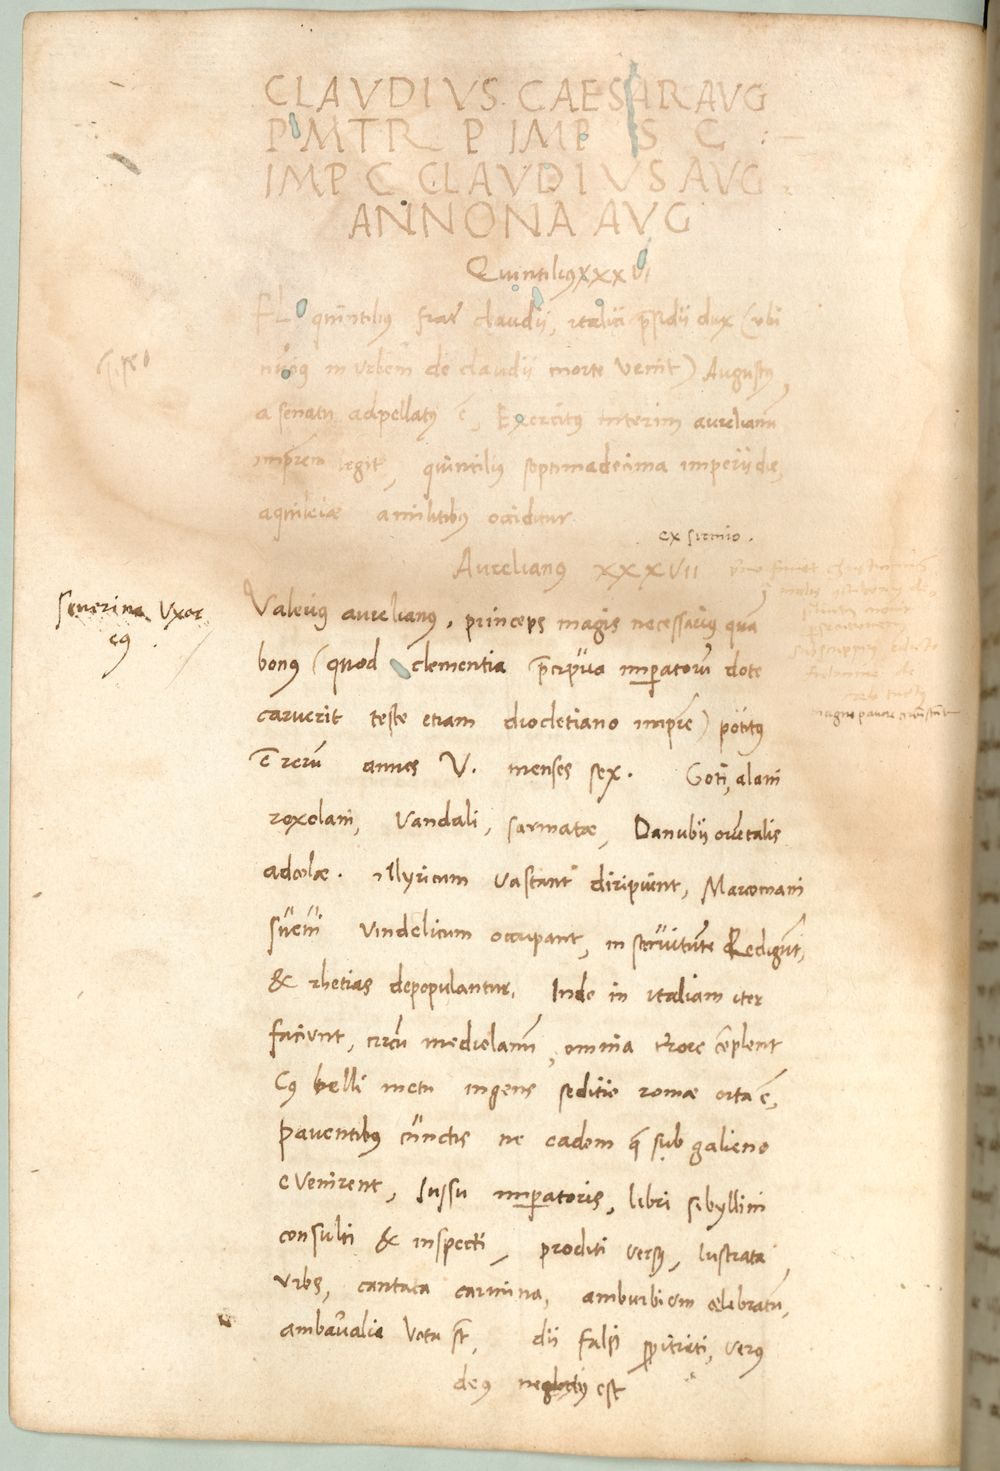 CLAVDIVS. CAESAR AVG
P MTR P IMP S C
IMP C CLAVDIVS AVG
ANNONA AVG
Quintiliꝰ XXXVI
FL quintiliꝰ frat̄ claudii, italici p̄sidii dux (vbi
in vrbem de claudii morte venit) Augustꝰ,
a senatu adpellatꝰ ē, Exercitꝰ interim aurelianū
imp̄rem legit, quintiliꝰ septimadecima imperii die,
aquileiae a militibꝰ occiditur
ex sirmio.
Aurelianꝰ XXXVII
Severina Vxor
eꝰ.
Valeriꝰ aurelianꝰ, princeps magis necessariꝰ quā
bonꝰ (quod clementia p̄cipua imꝑatorū dote
caruerit teste etiam diocletiano imp̄re) potitꝰ
ē rerū annos V. menses sex. Goti, alani
roxolani, Vandali, sarmatae, Danubii oriētalis
adcolae. illyricum vastant diripiunt, Marcomani
suevi vindelicum occupant, in servitutē Redigūt,
& rhetias depopulantur, Inde in italiam iter
faciunt, circū mediolanū, omnia t̄rore cōplent
Cꝰ belli metu ingens seditio romae orta ē,
paventibꝰ cunctis ne eadem q̄ sub galieno
evenirent, Iussu imꝑatoris, libri sibyllini
consulti & inspecti, proditi versꝰ, lustrata,
vrbs, cantata carmina, amburbium celebratū,
ambarvalia vota st̄, dii falsi ꝓpitiati, verꝰ
deꝰ neglectꝰ est
magno pavore